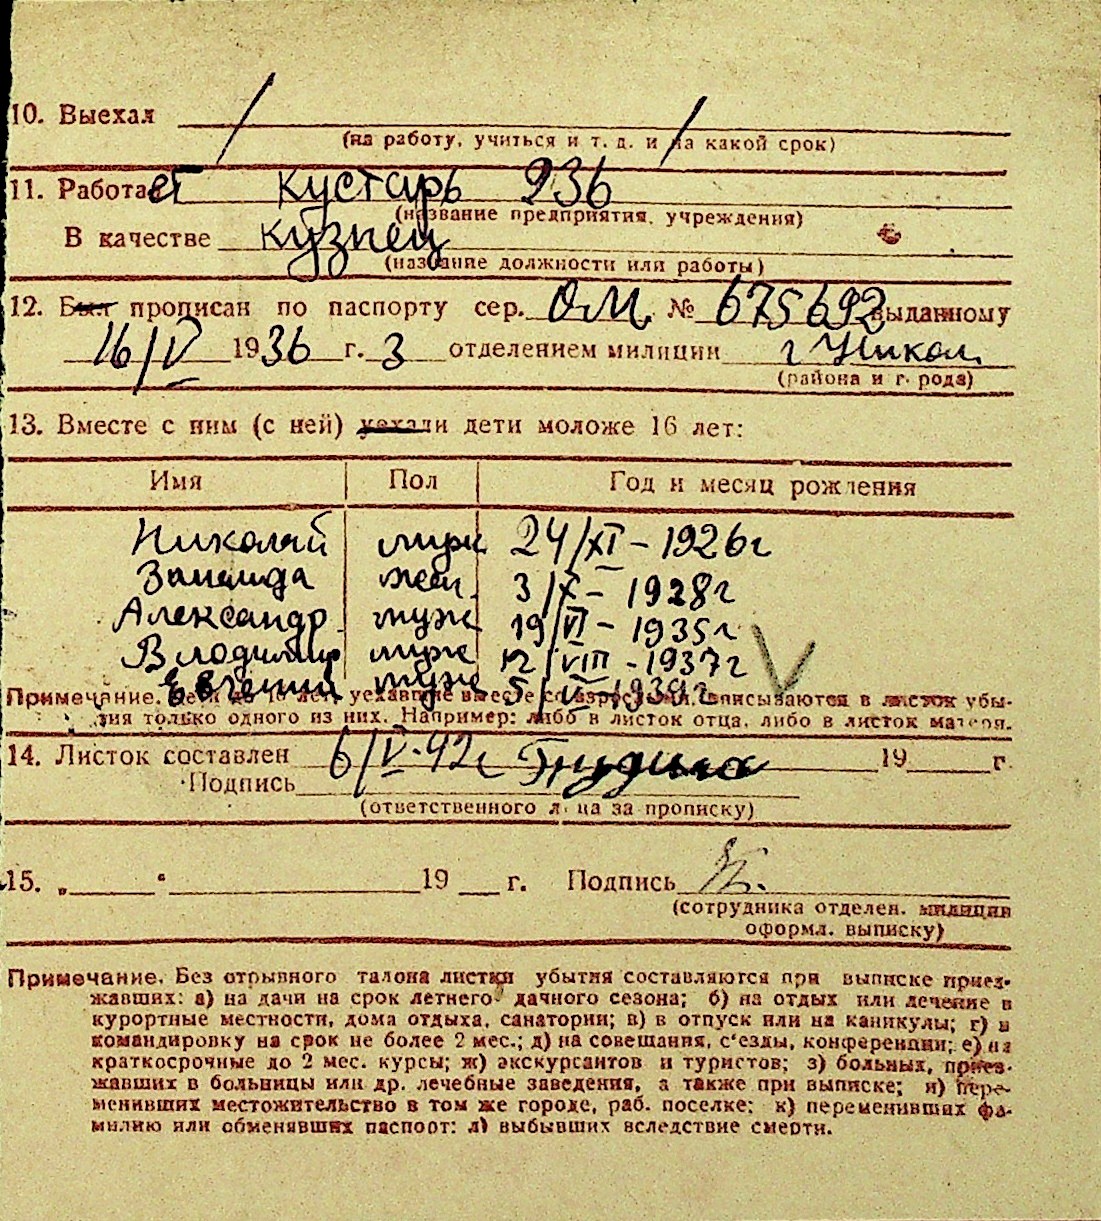 10. Выехал
(на работу, учиться и т. д. и на какой срок)
11. Работает кустарь 236
(название предприятия, учреждения)
В качестве кузнец
(название должности или работы)
12. Был прописан по паспорту сер. ОМ. № 675692 выданному
16/V 1936 г. 3 отделением милиции г Никол.
(района и г. рода)
13. Вместе с ним (с ней) уехали дети моложе 16 лет:
Имя Пол Год и месяц рождения
Николай муж 24/XI - 1926г
Зинаида жен. 3/X - 1928г
Александр муж 19/VI - 1935г
Владимир муж 12/VIII - 1937г
Евгений муж 5/ 1939г
Примечание. Дети до 16 лет уехавшие вместе со взрослыми, вписываются в листок убытия только одного из них. Например: либо в листок отца, либо в листок матери.
14. Листок составлен 6/V-42г 19 г.
Подпись
(ответственного лица за прописку)
15. „ “ 19 г. Подпись
(сотрудника отделен. милиции
оформл. выписку)
Примечание. Без отрывного талона листки убытия составляются при выписке приез-
жавших: а) на дачи на срок летнего дачного сезона; б) на отдых или лечение в
курортные местности, дома отдыха, санатории; в) в отпуск или на каникулы; г) в
командировку на срок не более 2 мес.; д) на совещания, с'езды, конференции; е) на
краткосрочные до 2 мес. курсы; ж) экскурсантов и туристов; з) больных, приез-
жавших в больницы или др. лечебные заведения, а также при выписке; и) пере-
менивших местожительство в том же городе, раб. поселке; к) переменивших фа-
милию или обменявших паспорт: л) выбывших вследствие смерти.